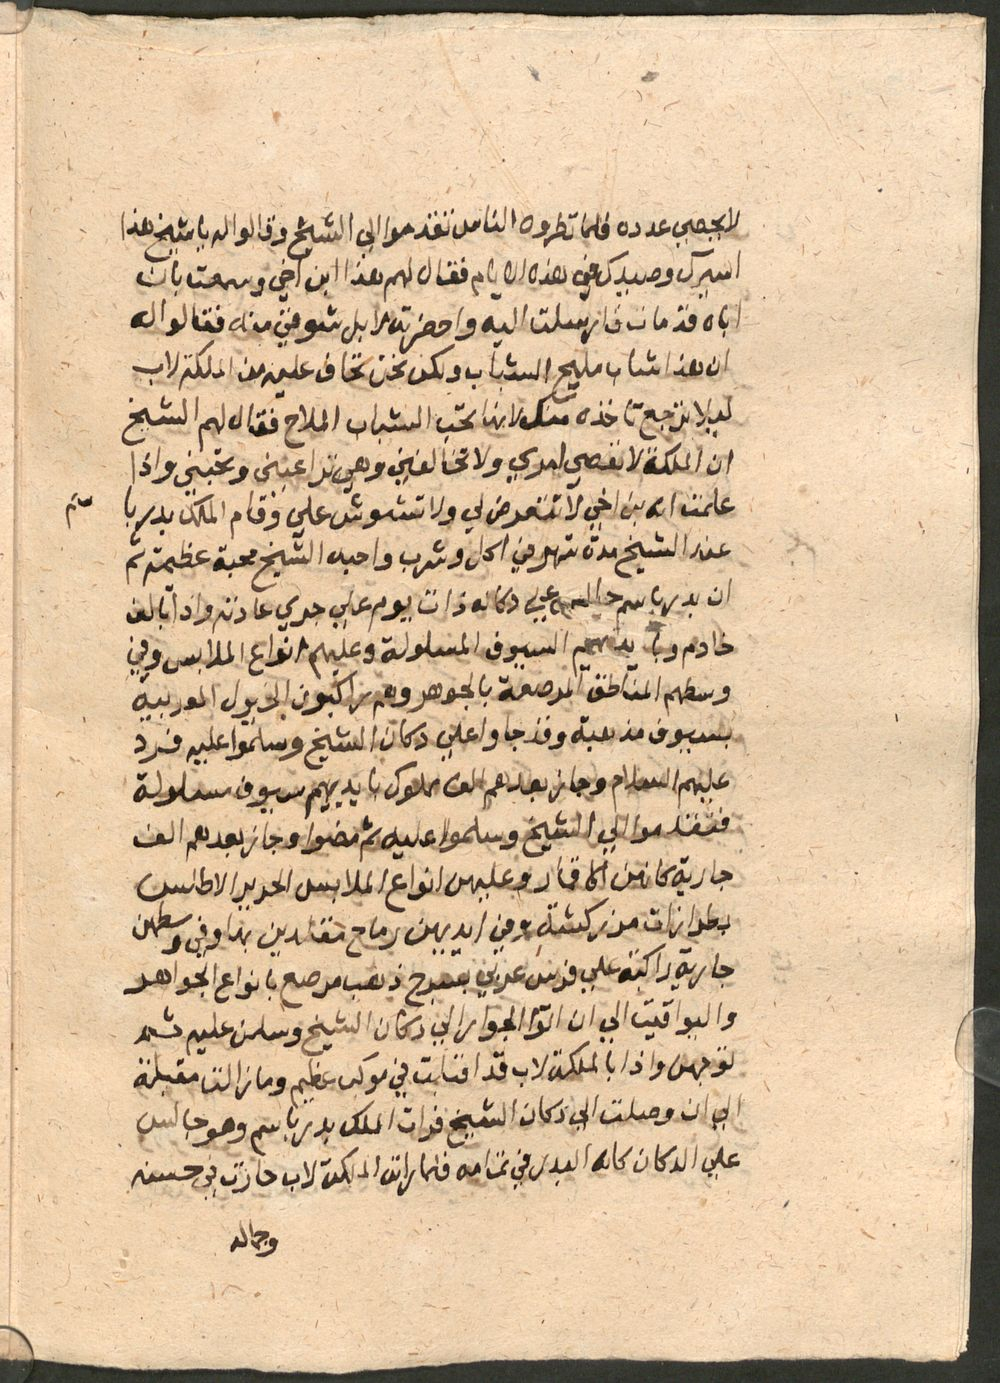 لا يحصي عدده فلما نظروه الناس تقدموا الي الشيخ وقالوا له يا شيخ هذا
اسيرك وصيدك في هذه الايام فقال لهم هذا ابن اخي وسمعت بان
اباه قد مات فارسلت اليه واحضرته لابل شوقي منه فقالوا له
ان هذا شاب مليح الشباب ولكن نحن نخاف عليه من الملكة لاب
ليلا ترجع تاخذه منك لانها تحب الشباب الملاح فقال لهم الشيخ
ان الملكة لا تعصي امري ولا تخالفني وهي تراعيني وتحبني واذا
علمت انه بن اخي لا تتعرض لي ولا تشوش علي فقام الملك بدر با
سم
عند الشيخ مدة شهر في اكل وشرب واحبه الشيخ محبة عظيمة ثم
ان بدر باسم جالس علي دكانه ذات يوم علي جري عادته واذا بالف
خادم وبايديهم السيوف المسلولة وعليهم انواع الملابس وفي
وسطهم المناطق المرصعة بالجوهر وهم راكبون الخيول العربية
بسيوف مذهبة وقد جاوا علي دكان الشيخ وسلموا عليه فرد
عليهم السلام وجاز بعدهم الف مملوك بايديهم سيوف مسلولة
فتقدموا الي الشيخ وسلموا عليه ثم مضوا وجاز بعدهم الف
جارية كانهن الاقمار وعليهن انواع الملابس الحرير الاطلس
بطرازات مزركشة وفي ايديهن رماح متقلدين بها وفي وسطهن
جارية راكبة علي فرس عربي بسرج ذهب مرصع بانواع الجواهر
واليواقيت الي ان اتوا الجوار الي دكان الشيخ وسلمن عليه ثم
توجهن واذا بالملكة لاب قد اقبلت في موكب عظيم وما زالت مقبلة
الي ان وصلت الي دكان الشيخ فرات الملك بدر باسم وهو جالس
علي الدكان كانه البدر في تمامه فلما راته الملكة لاب حارت في حسنه
وجماله